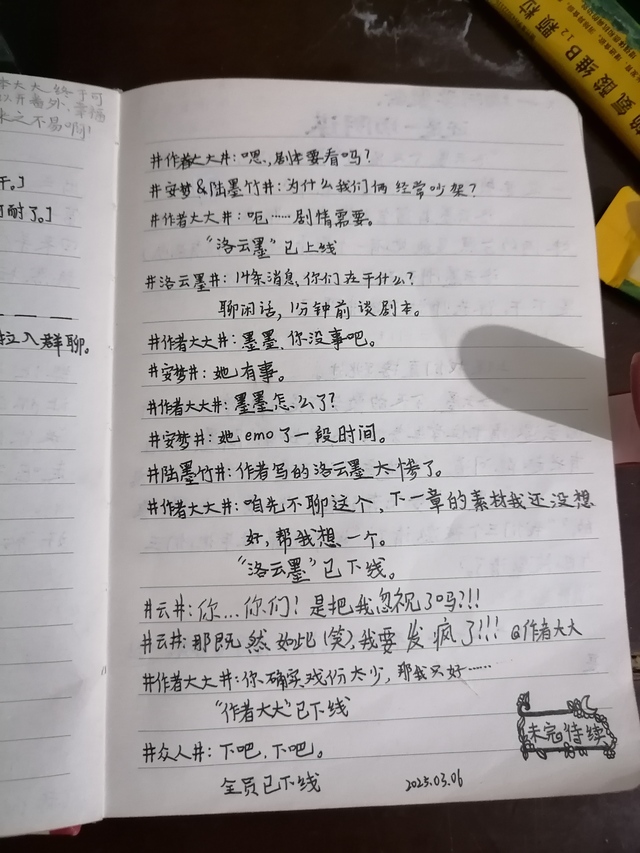 本大大终于可
以开番外,幸福
来之不易啊!
干。]
可耐了。]
拉入群聊。
#作者大大#:嗯,剧本要看吗?
#安梦&陆墨竹#:为什么我们俩经常吵架?
#作者大大#:呃……剧情需要。
“洛云墨”已上线
#洛云墨#:14条消息,你们在干什么?
聊闲话,1分钟前谈剧本。
#作者大大#:墨墨,你没事吧。
#安梦#:她有事。
#作者大大#:墨墨怎么了?
#安梦#:她emo了一段时间。
#陆墨竹#:作者写的洛云墨太惨了。
#作者大大#:咱先不聊这个,下一章的素材我还没想
好,帮我想一个。
“洛云墨”已下线。
#云#:你...你们!是把我忽视了吗?!!
#云#:那既然如此(笑),我要发疯了!!! @作者大大
#作者大大#:你确实戏份太少,那我只好……
“作者大大”已下线
#众人#:下吧,下吧。
全员已下线
2025.03.06
未完待续
氨酸维B颗粒
12